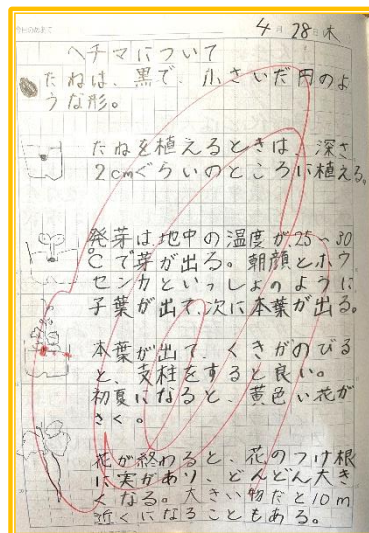 4月28日木
ヘチマについて
たねは、黒で、小さいだ円のよ
うな形。
たねを植えるときは、深さ
2cmぐらいのところに植える。
発芽は地中の温度が25~30
℃で芽が出る。朝顔とホウ
センカといっしょのように
子葉が出て、次に本葉が出る。
本葉が出て、くきがのびる
と、支柱をすると良い。
初夏になると、黄色い花が
さく。
花が終わると、花のつけ根
に実があり、どんどん大き
くなる。大きい物だと10m
近くになることもある。